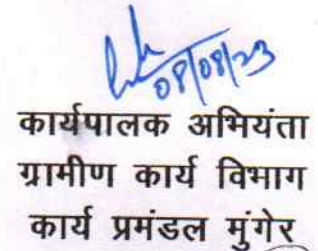 08/08/23
कार्यपालक अभियंता
ग्रामीण कार्य विभाग
कार्य प्रमंडल मुंगेर